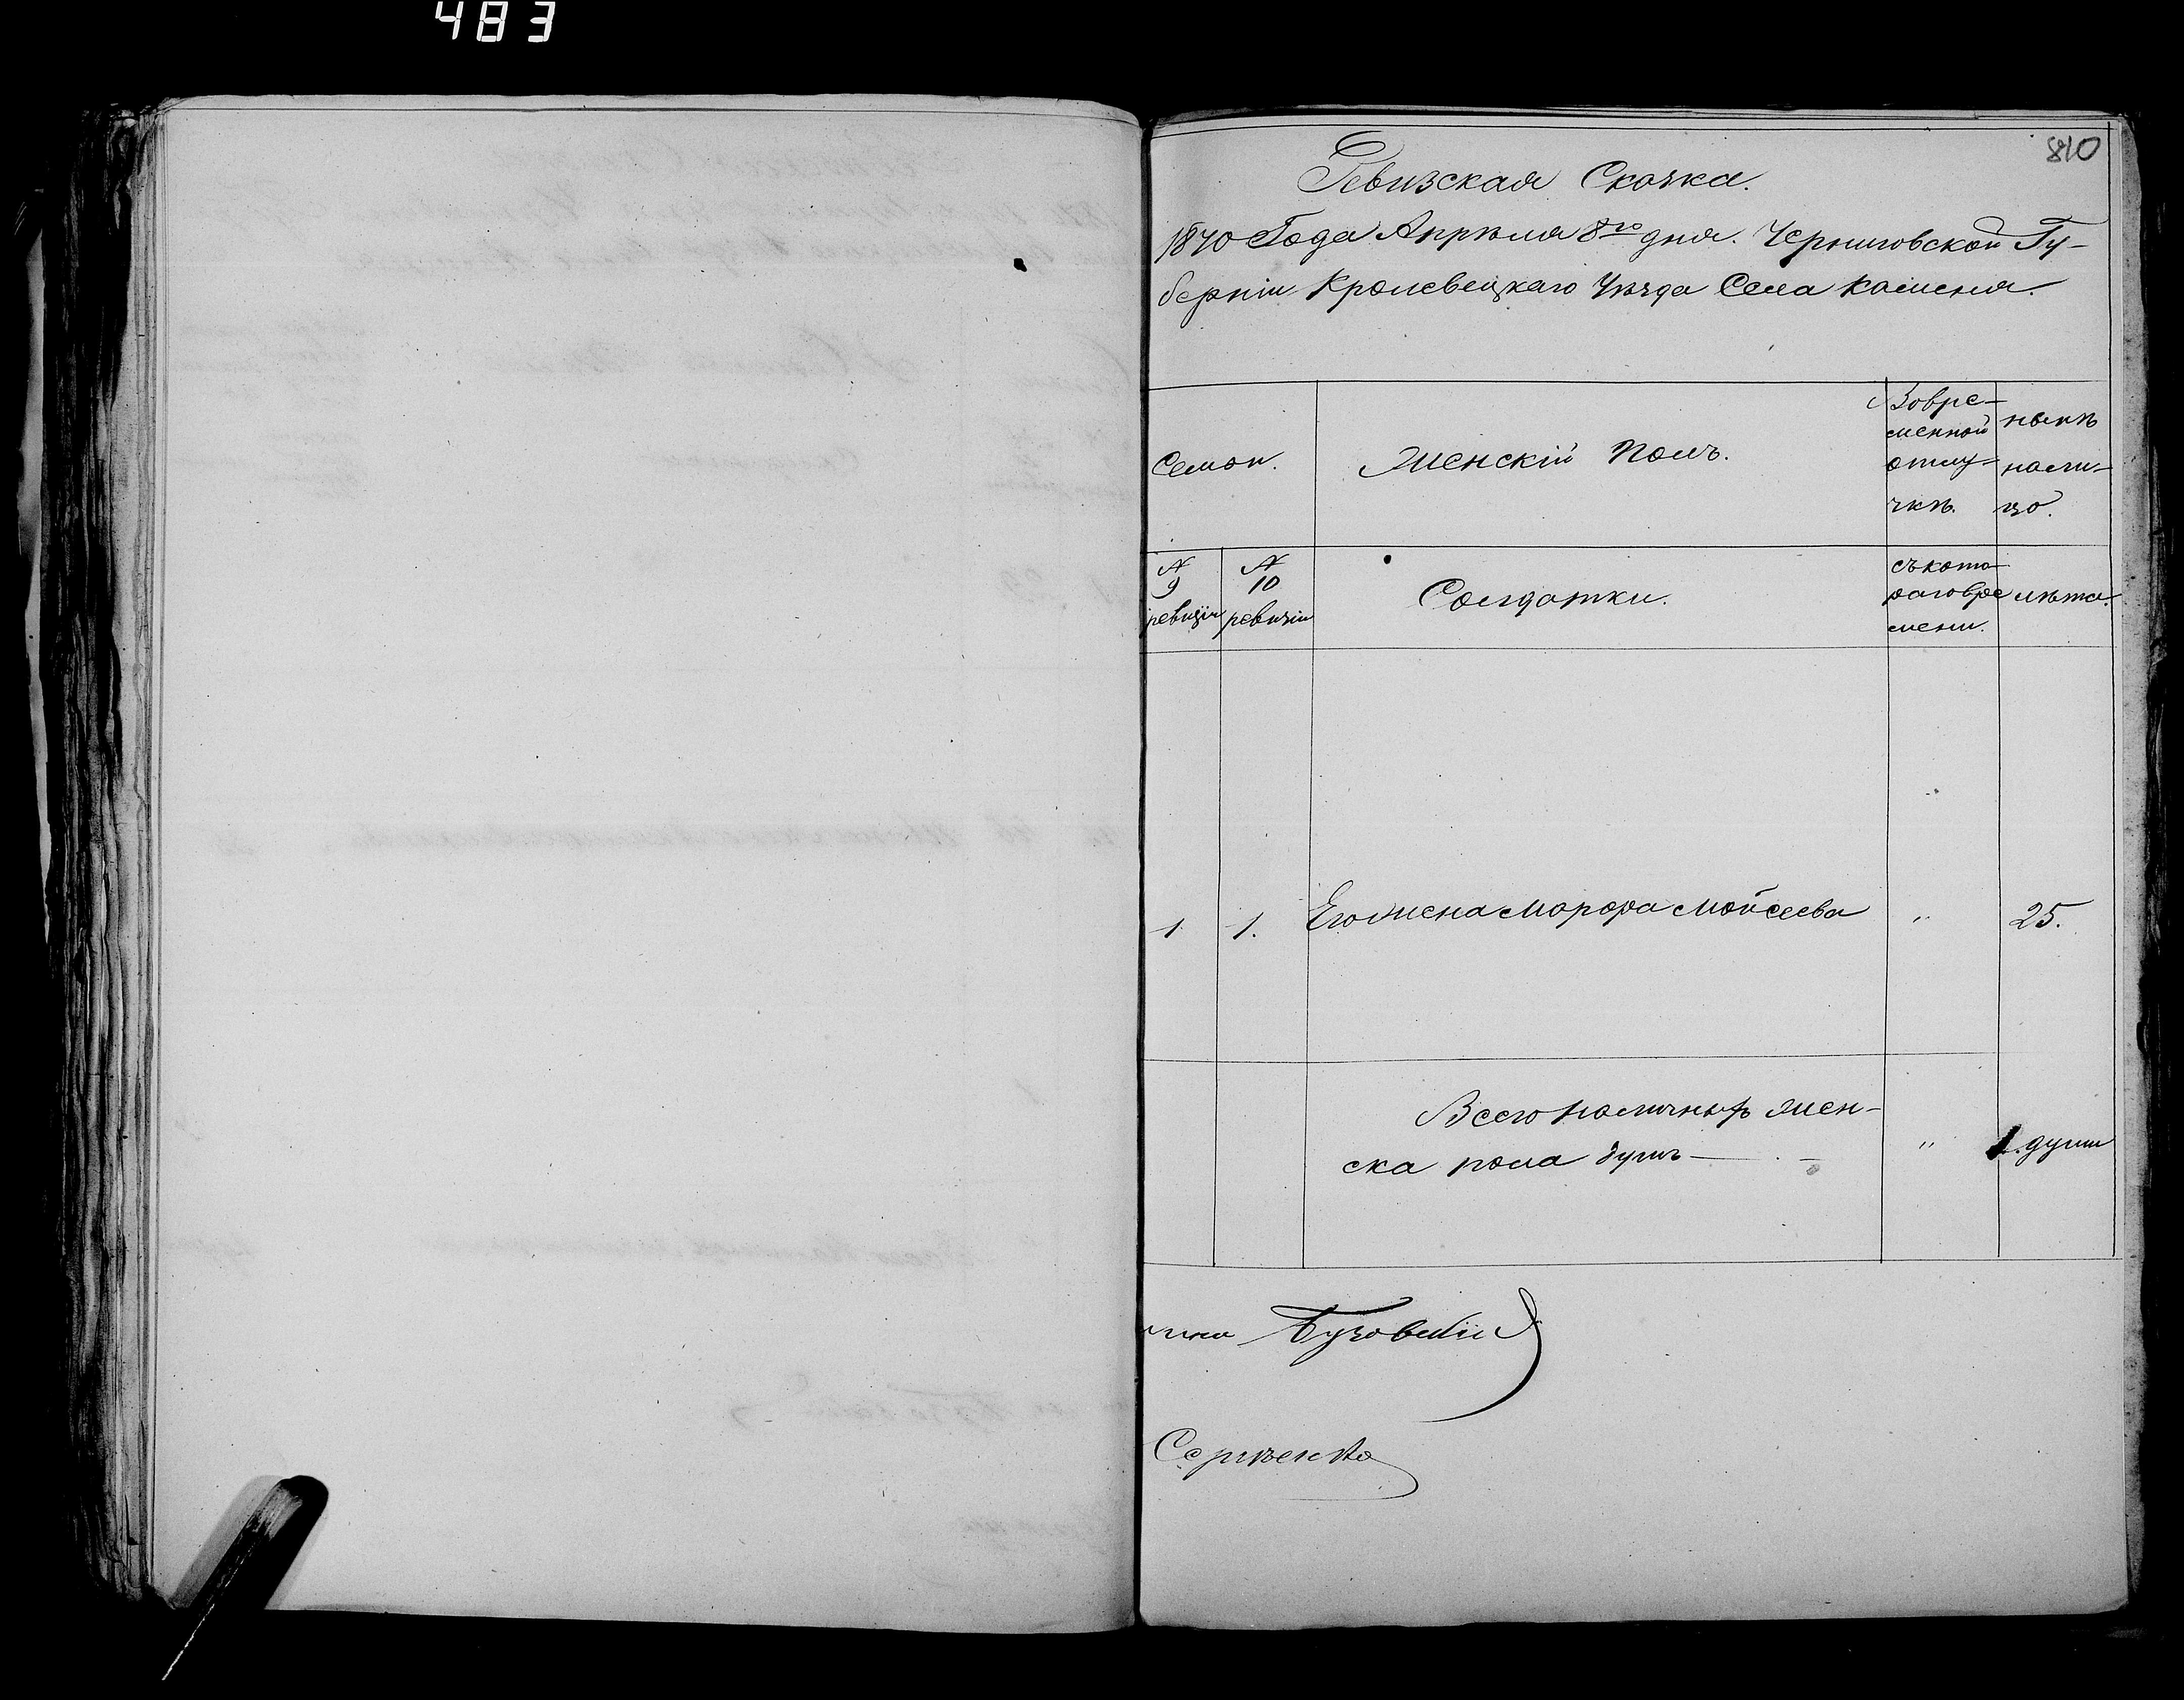 483
810
Ревизская Сказка.
1870 Года Апрѣля 8го дня. Черниговской Гу-
берніи Кролевецкаго Уѣзда Села Каменя.
Семьи.
Женскій Полъ.
Вовре-
менной
отлу-
чкѣ.
нынѣ
нали-
цо.
№ 9 ревизіи
№ 10 ревизіи
Солдатки.
съ кото-
раго вре
мени.
лѣта.
1 1. Его жена Марфа Мойсеева " 25.
Всего наличныхъ жен-
ска пола душъ — " 1. души
Сергѣенко